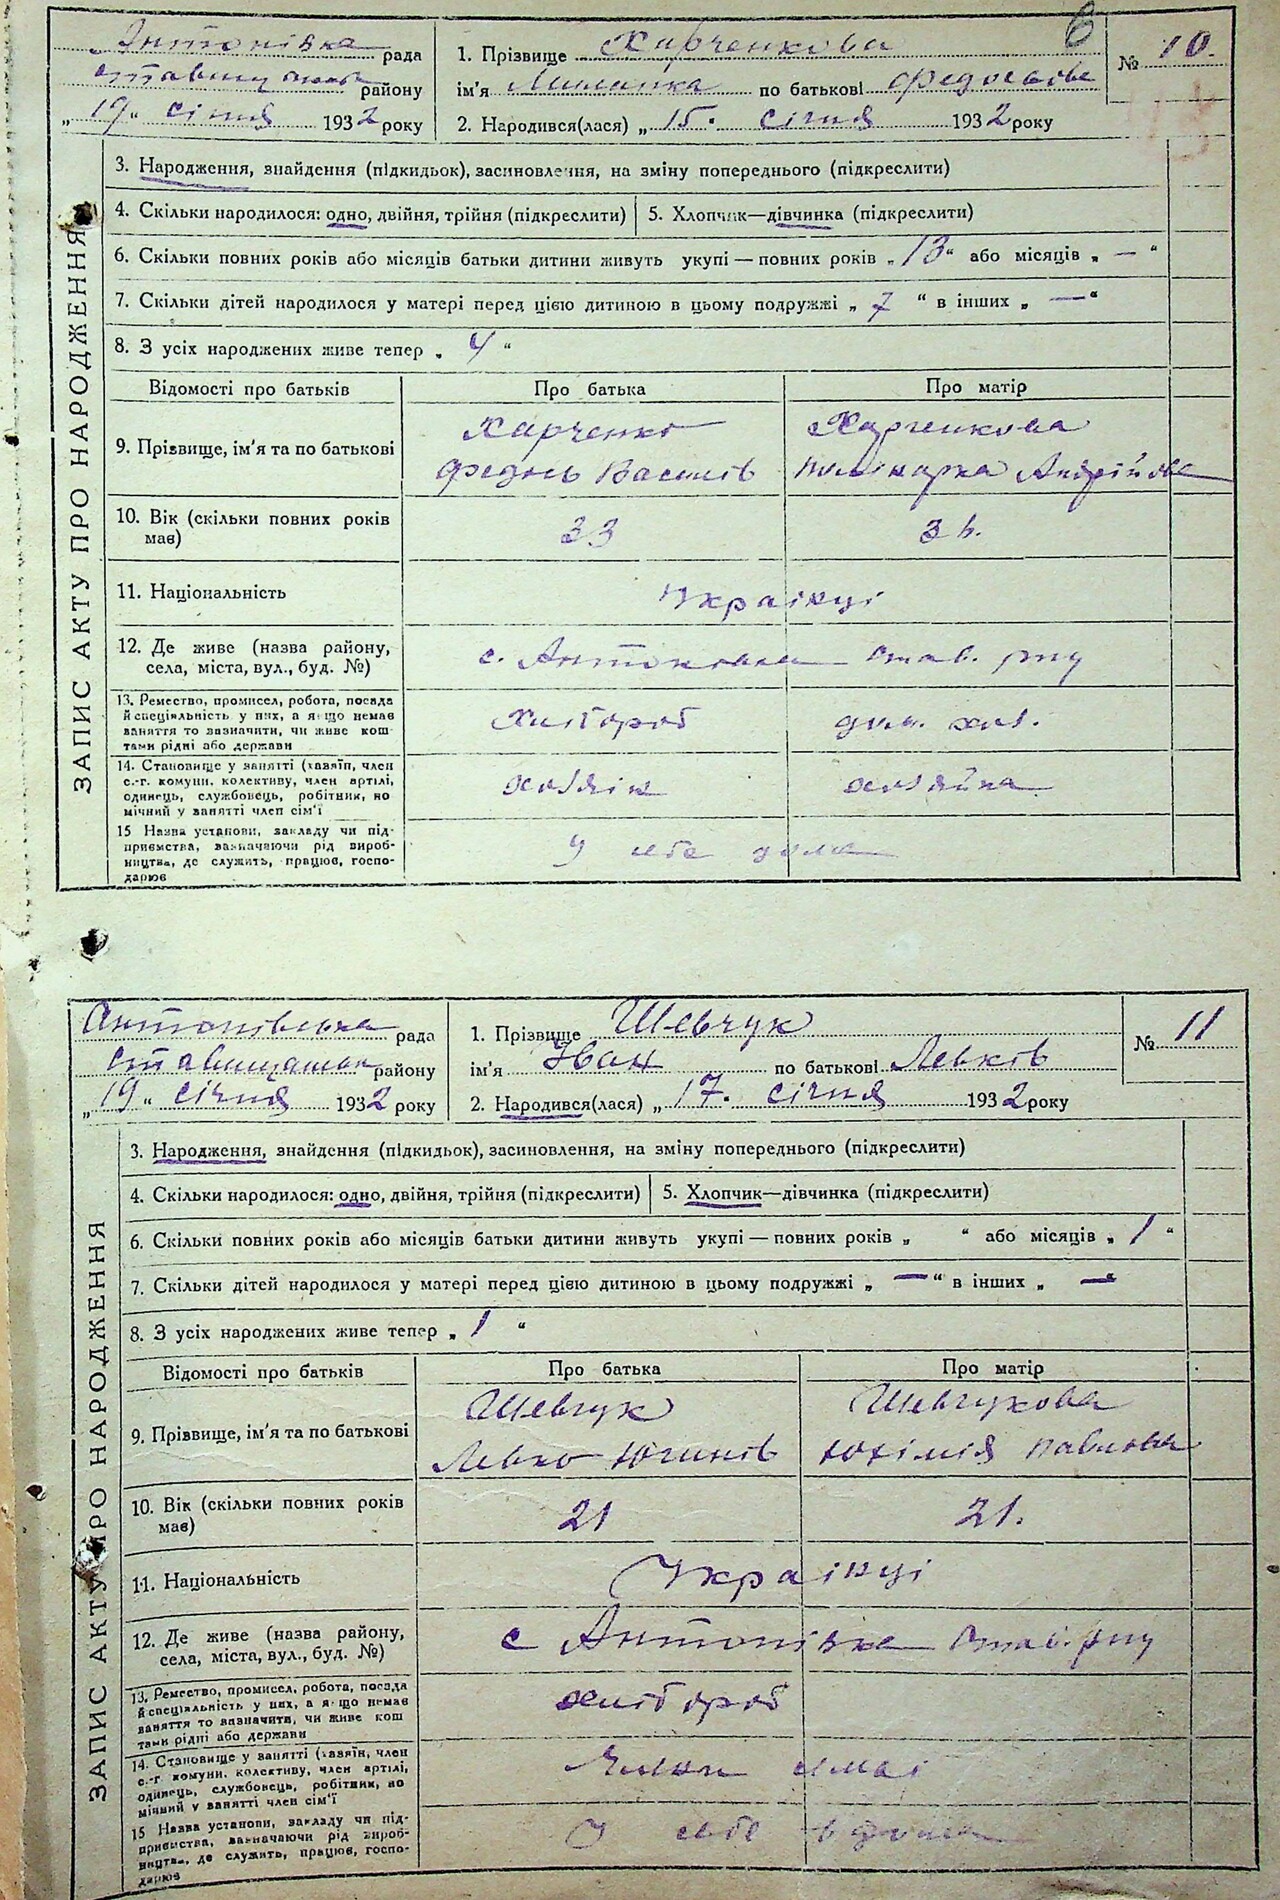 6
Антонівка рада
Ставищанськ району
„19“ січня 1932 року
1. Прізвище Харченкова
ім'я Миланка по батькові Федосьова
2. Народився(лася) „15. січня 1932 року
№ 10.
ЗАПИС АКТУ ПРО НАРОДЖЕННЯ
3. Народження, знайдення (підкидьок), засиновлення, на зміну попереднього (підкреслити)
4. Скільки народилося: одно, двійня, трійня (підкреслити) 5. Хлопчик—дівчинка (підкреслити)
6. Скільки повних років або місяців батьки дитини живуть укупі — повних років „13“ або місяців „—“
7. Скільки дітей народилося у матері перед цією дитиною в цьому подружжі „7“ в інших „—“
8. З усіх народжених живе тепер „4“
Відомості про батьків Про батька Про матір
9. Прізвище, ім'я та по батькові
Харченко Харченкова
Федось Василів Андрійова
10. Вік (скільки повних років має) 33
11. Національність Українці
12. Де живе (назва району, села, міста, вул., буд. №) с. Антоновка Став. р-ну
13. Ремество, промисел, робота, посада
й спеціяльність у них, а якщо немає
заняття то зазначити, чи живе кош-
тами рідні або держави
Хлібороб дом. хоз.
14. Становище у занятті (хазяїн, член
с.-г. комуни, колективу, член артілі,
одинець, службовець, робітник, по
мічний у занятті член сім'ї
хозяїн хозяйка
15 Назва установи, закладу чи під-
приємства, зазначаючи рід вироб-
ництва, де служить, працює, госпо-
дарює
У себе дома
Антонівська рада
Ставищанськ району
„19“ січня 1932 року
1. Прізвище Шевчук
ім'я Іван по батькові Левків
2. Народився(лася) „17. січня 1932 року
№ 11
ЗАПИС АКТУ ПРО НАРОДЖЕННЯ
3. Народження, знайдення (підкидьок), засиновлення, на зміну попереднього (підкреслити)
4. Скільки народилося: одно, двійня, трійня (підкреслити) 5. Хлопчик—дівчинка (підкреслити)
6. Скільки повних років або місяців батьки дитини живуть укупі — повних років „ “ або місяців „1“
7. Скільки дітей народилося у матері перед цією дитиною в цьому подружжі „—“ в інших „—“
8. З усіх народжених живе тепер „1“
Відомості про батьків Про батька Про матір
9. Пріввище, ім'я та по батькові
Шевчук Шевчукова
Левко Юхимів Юхімія Павлова
10. Вік (скільки повних років має) 21 21.
11. Національність Українці
12. Де живе (назва району, села, міста, вул., буд. №) с Антонівка Став. р-ну
13. Ремество, промисел, робота, посада
й спеціяльність у них, а якщо немає
заняття то зазначити, чи живе кош
тами рідні або держави
хлібороб
14. Становище у занятті (хазяїн, член
с.-г комуни, колективу, член артілі,
одинець, службовець, робітник, по
мічний у занятті член сім'ї
15 Назва установи, закладу чи під-
приємства, зазначаючи рід вироб-
ництва, де служить, працює, госпо-
дарює
У себе вдома